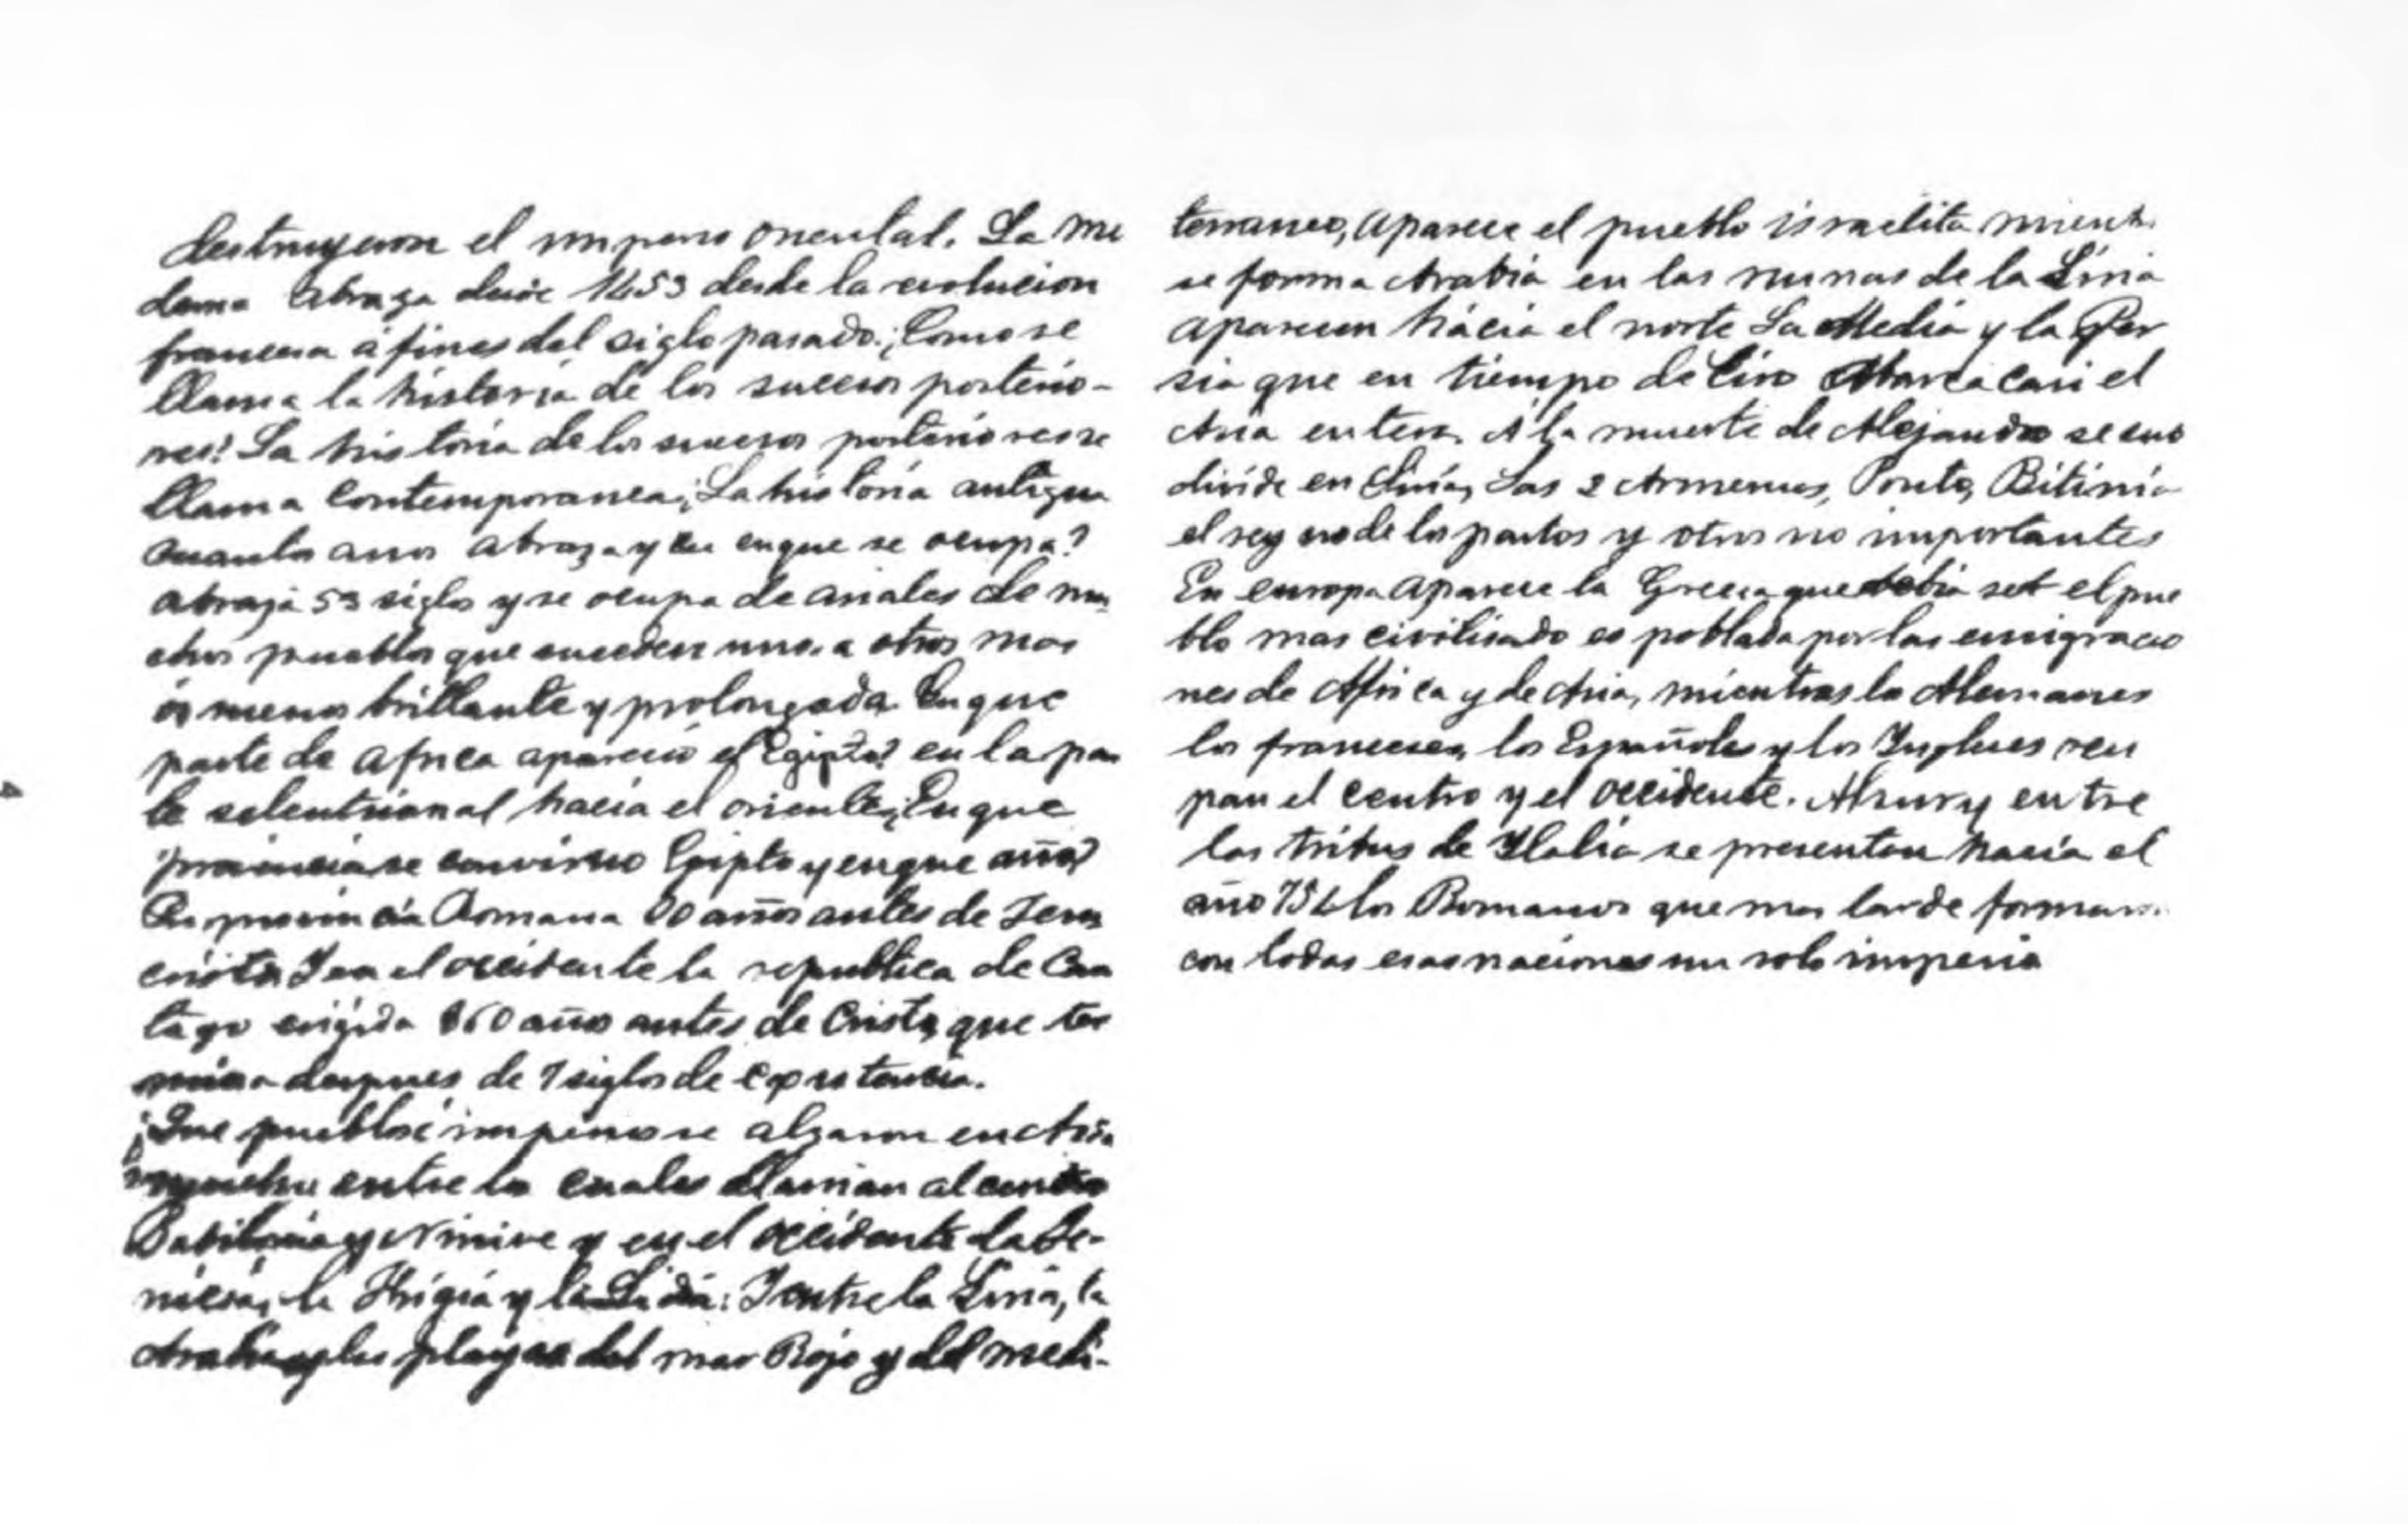 destruyeron el imperio oriental. La mo
derna abraza desde 1453 desde la revolucion
francesa á fines del siglo pasado. ¿Como se
llama la historia de los sucesos posterio-
res? La historia de los sucesos posteriores se
llama Contemporanea; La historia antigua
cuantos anos abraza y en que se ocupa?
abraza 53 siglos y se ocupa de anales de mu
chos pueblos que suceden unos a otros mas
ó menos brillante y prolongada. En que
parte de africa apareció el Egipto? en la par
te setentrional hacia el oriente; En que
provincia se convirtio Egipto y en que año?
En provincia Romana 30 años antes de Jesu
cristo. Y en el occidente la republica de Car
tago erigida 860 años antes de Cristo, que ter
mina despues de 7 siglos de existencia.
¿Que pueblos é imperios se alzaron en Asia
muchos entre los cuales llaman al centro
Babilonia y Ninive y en el occidente la Fe-
nicia, la Frigia y la Lidia: Y entre la Siria, la
Arabia y las playas del mar Rojo y del medi-
terraneo, aparece el pueblo israelita mient
se forma Arabia en las ruinas de la Siria
aparecen hácia el norte La Media y la Per
sia que en tiempo de Ciro abarca casi el
Asia entera. A la muerte de Alejandro se sub
divide en Siria, Las 2 Armenias, Ponto, Bitinia
el reyno de los partos y otros no importantes
En europa aparece la Grecia que debia ser el pue
blo mas civilisado es poblada por las emigracio
nes de Africa y de Asia, mientras los Alemanes
los franceses, los Españoles y los Ingleses ocu
pan el centro y el occidente. entre
las tribus de Italia se presentan hacia el
año 754 los Romanos que mas tarde forman
con todas esas naciones un solo imperio